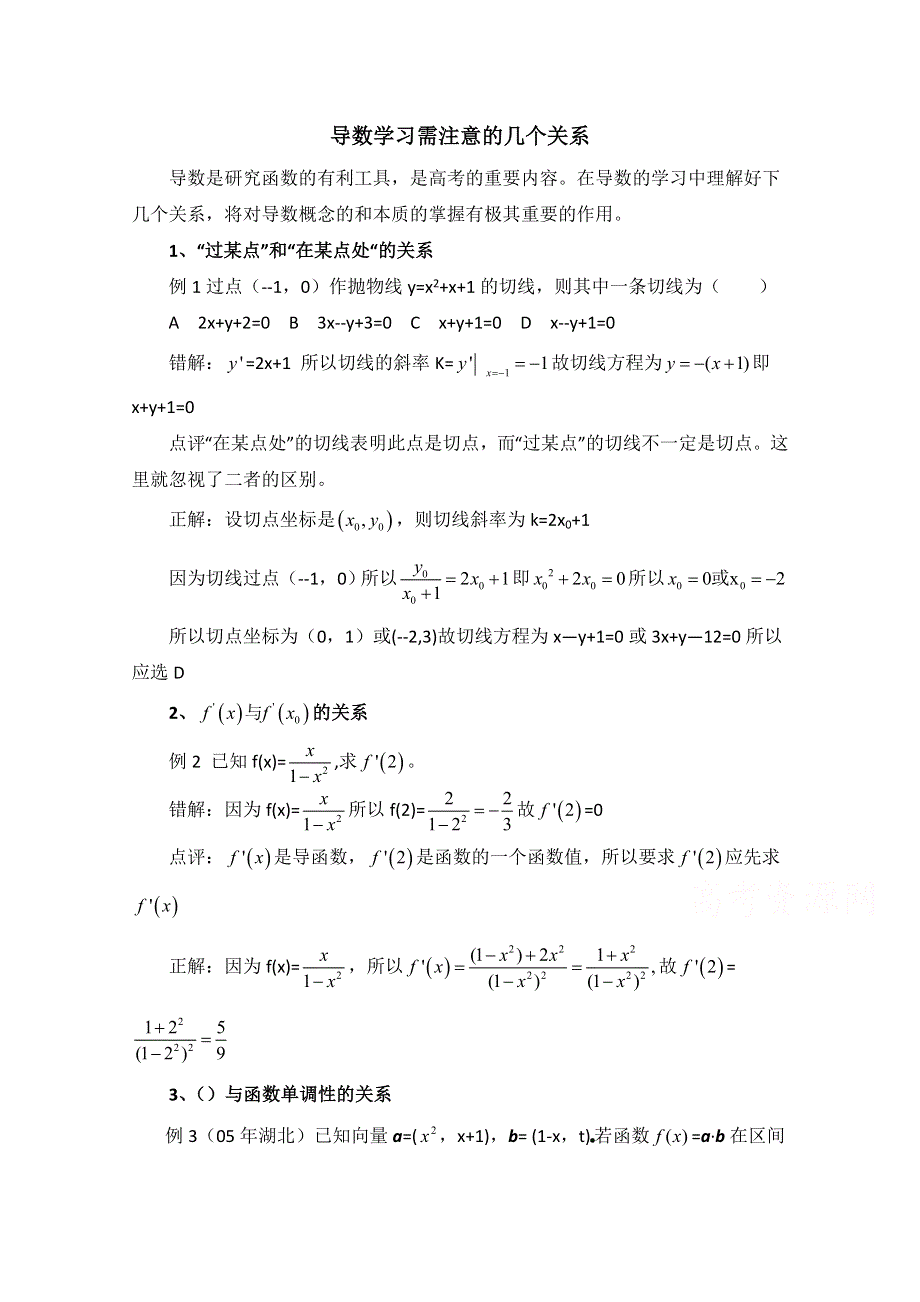 导数学习需注意的几个关系
导数是研究函数的有利工具，是高考的重要内容。在导数的学习中理解好下
几个关系，将对导数概念的和本质的掌握有极其重要的作用。
1、“过某点”和“在某点处“的关系
例 1 过点（--1，0）作抛物线 y=x²+x+1 的切线，则其中一条切线为（　　）
A 2x+y+2=0 B 3x--y+3=0 C x+y+1=0 D x--y+1=0
错解：y'=2x+1 所以切线的斜率 K= y'|ₓ₌₋₁ = −1 故切线方程为 y = −(x+1) 即
x+y+1=0
点评“在某点处”的切线表明此点是切点，而“过某点”的切线不一定是切点。这
里就忽视了二者的区别。
正解：设切点坐标是 (x₀, y₀)，则切线斜率为 k=2x₀+1
因为切线过点（--1，0）所以 y₀/(x₀+1) = 2x₀+1 即 x₀²+2x₀=0 所以 x₀=0或x₀=−2
所以切点坐标为（0，1）或(--2,3)故切线方程为 x—y+1=0 或 3x+y—12=0 所以
应选 D
2、f'(x)与f'(x₀) 的关系
例 2 已知 f(x)= x/(1−x²) ,求 f'(2)。
错解：因为 f(x)= x/(1−x²) 所以 f(2)= 2/(1−2²) = −2/3 故 f'(2)=0
点评：f'(x) 是导函数，f'(2) 是函数的一个函数值，所以要求 f'(2) 应先求
f'(x)
高考资源网
正解：因为 f(x)= x/(1−x²)，所以 f'(x) = ((1−x²)+2x²)/(1−x²)² = (1+x²)/(1−x²)², 故 f'(2)=
(1+2²)/(1−2²)² = 5/9
3、（）与函数单调性的关系
例 3（05 年湖北）已知向量 a=( x²，x+1)，b= (1-x，t)若函数 f(x) =a·b 在区间